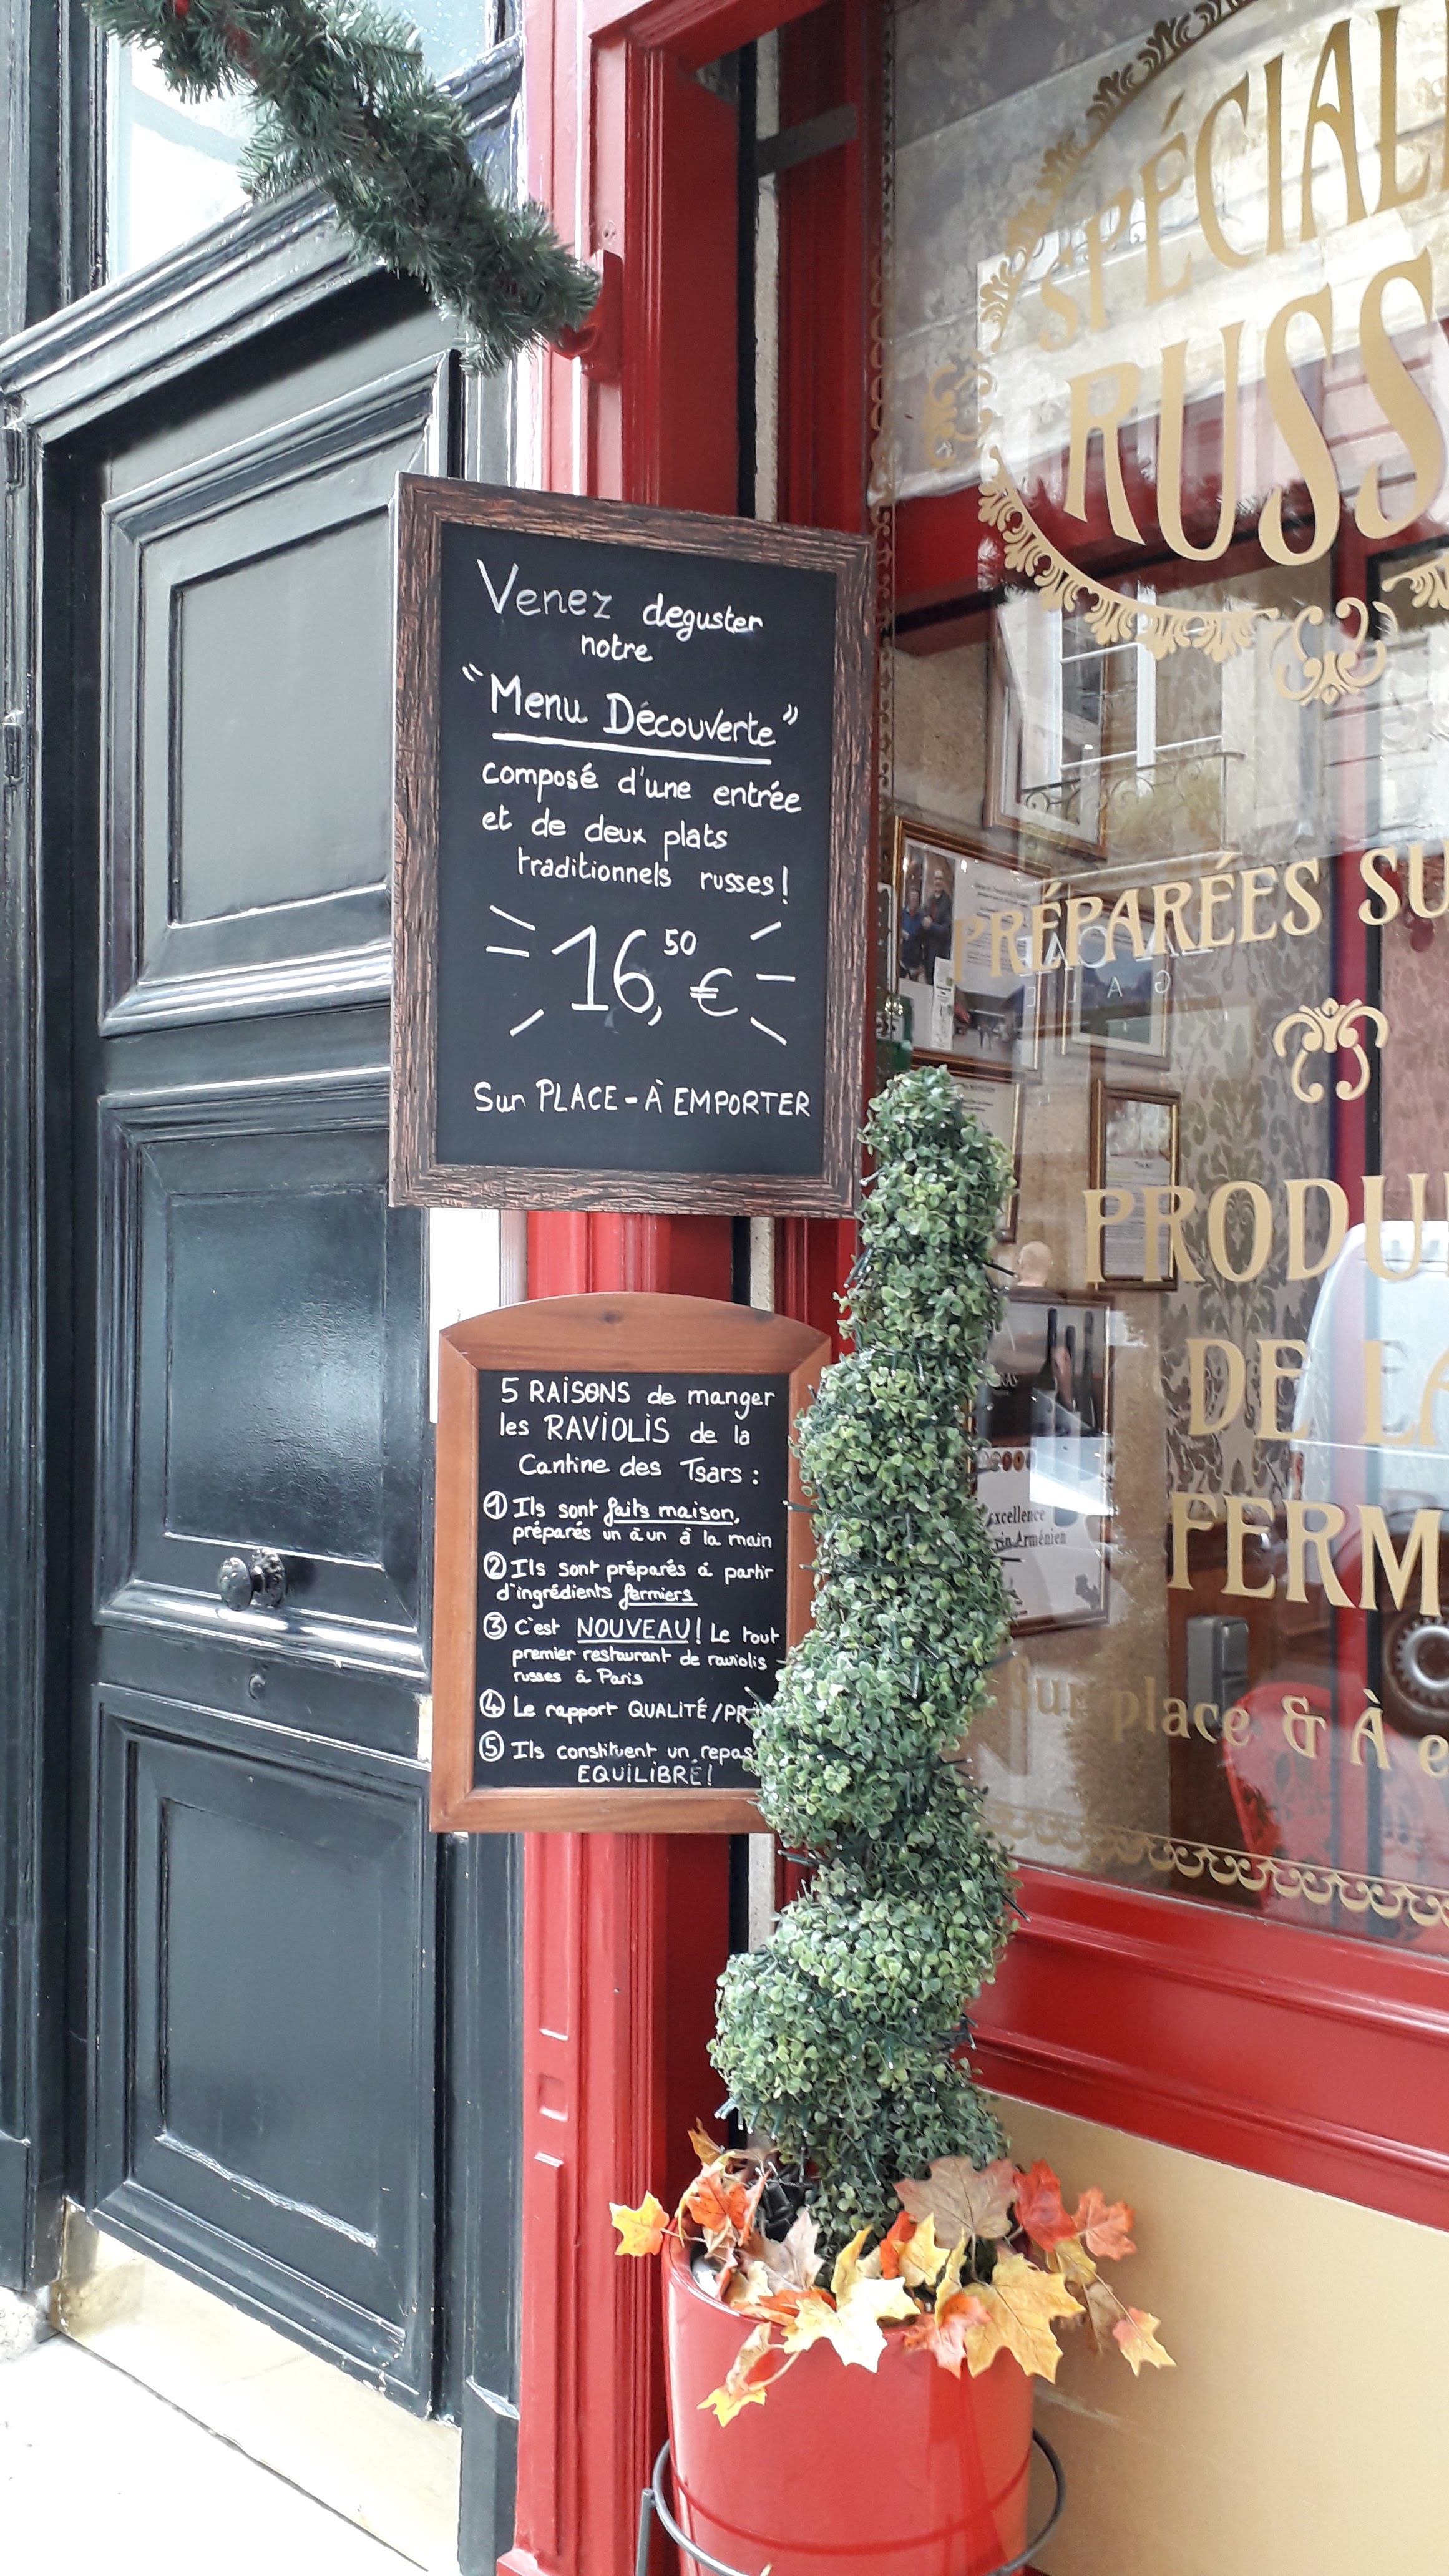 Venez deguster
notre
"Menu Découverte"
composé d'une entrée
et de deux plats
traditionnels russes!
16,50 €
Sur PLACE - À EMPORTER
5 RAISONS de manger
les RAVIOLIS de la
Cantine des Tsars :
① Ils sont faits maison,
préparés un à un à la main
② Ils sont préparés à partir
d'ingrédients fermiers
③ C'est NOUVEAU! Le tout
premier restaurant de raviolis
russes à Paris
④ Le rapport QUALITÉ/PR
⑤ Ils constituent un repas
EQUILIBRÉ!
SPÉCIAL
RUSS
PRÉPARÉES SU
PRODU
DE LA
FERM
Sur place & À e
xcellence
vin Arménien